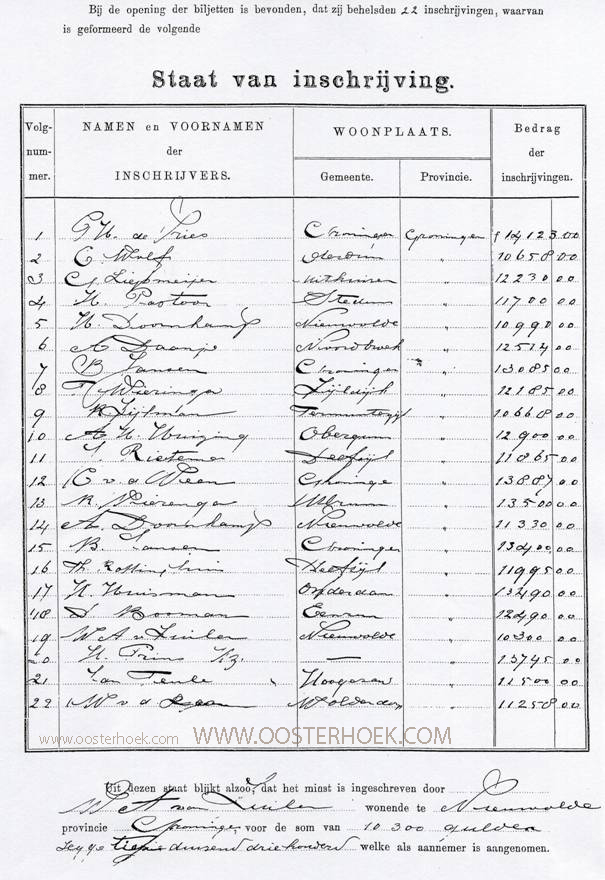 Bij de opening der biljetten is bevonden, dat zij behelsden 22 inschrijvingen, waarvan
is geformeerd de volgende
Staat van inschrijving.
Volg-
num-
mer.
NAMEN en VOORNAMEN
der
INSCHRIJVERS.
WOONPLAATS.
Gemeente.
Provincie.
Bedrag
der
inschrijvingen.
1 de Vries Groningen Groningen f 14123 00
2 Wolf " 10658 00
3 Liepmeijer Uithuizen " 12230 00
4 H. Pastoor Stedum " 11700 00
5 H. Doornkamp Nieuwolde " 10990 00
6 Daanje Noordbroek " 12514 00
7 B Jansen Groningen " 13085 00
8 Wieringa Zijldijk " 12185 00
9 R Zijlman Termunterzijl " 10668 00
10 A H. Huizing Obergum " 12900 00
11 Rietema Delfzijl " 11865 00
12 v. d. Veen Groninge " 13887 00
13 R. Wierenga Ulrum " 13500 00
14 A. Doornkamp Nieuwolde " 11330 00
15 B. Jansen Groningen " 13400,00
16 Th. Delfzijl " 11995 00
17 H. Huisman Onderdam " 13290 00
18 D Booman Eenrum " 12490 00
19 W A v Zuilen Nieuwolde " 10300 00
20 H. Prins Hz. — " 13745 00
21 Jan " 11500 00
22 W v. d. Wolderdorp " 11258 00
www.oosterhoek.com WWW.OOSTERHOEK.COM
Uit dezen staat blijkt alzoo, dat het minst is ingeschreven door
W A van Zuilen wonende te Nieuwolde
provincie Groningen voor de som van 10300 gulden
Zegge tien duizend driehonderd welke als aannemer is aangenomen.